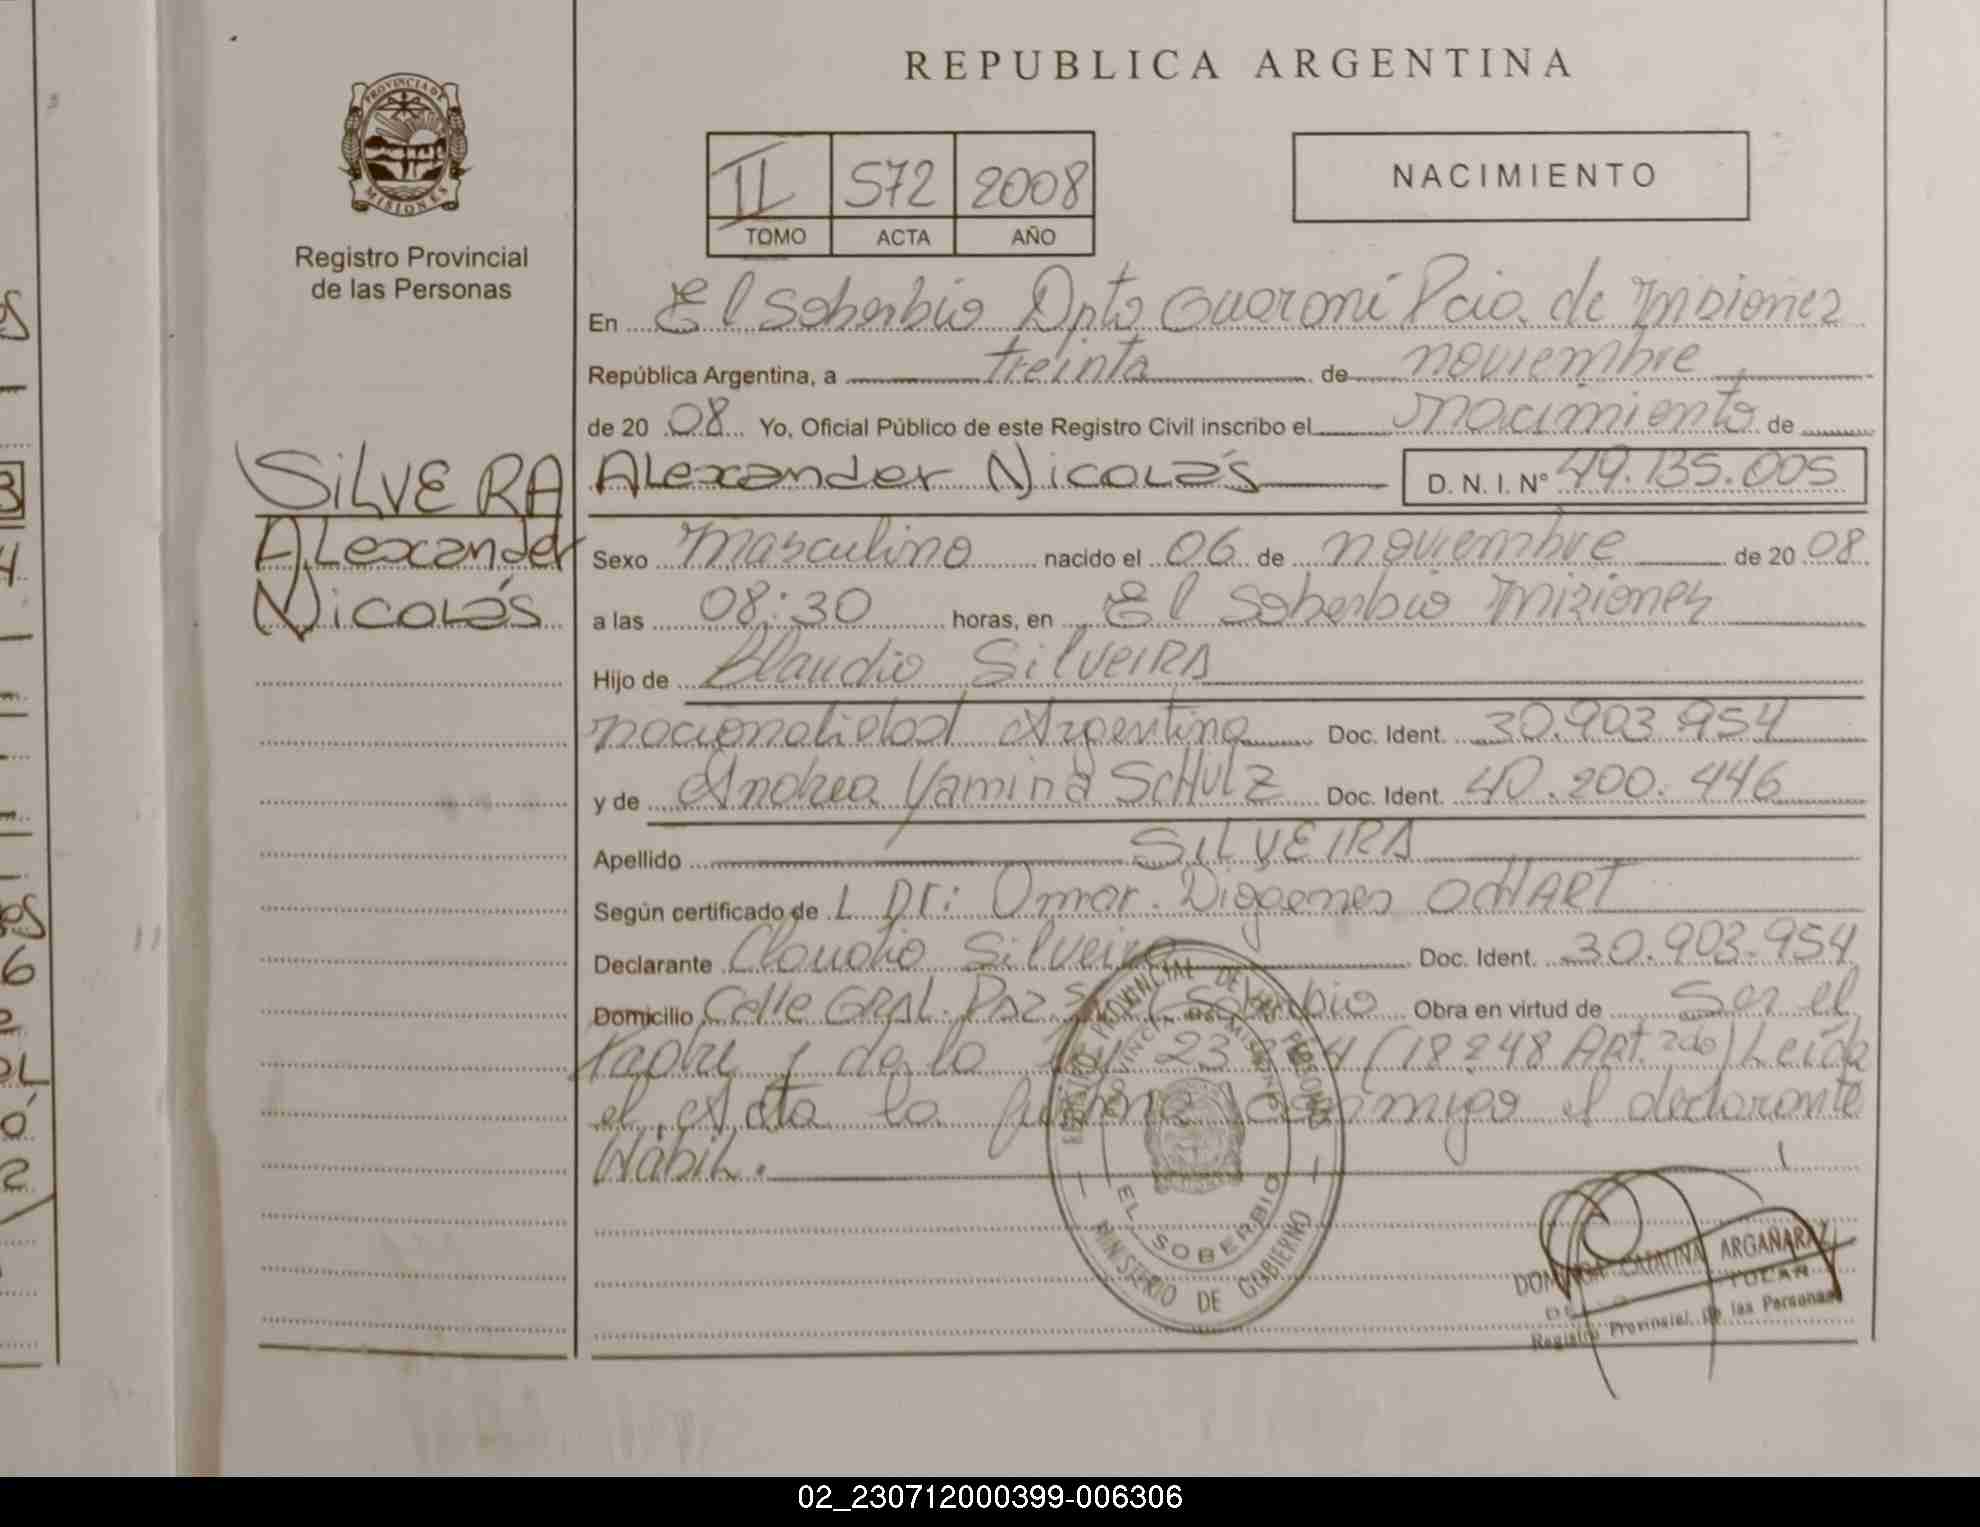 REPUBLICA ARGENTINA
PROVINCIA DE
MISIONES
Registro Provincial
de las Personas
II 572 2008
TOMO ACTA AÑO
NACIMIENTO
En El Soberbio Dpto Guaraní Pcia. de Misiones
República Argentina, a treinta de noviembre
de 2008 Yo, Oficial Público de este Registro Civil inscribo el nacimiento de
SILVERA
Alexander
Nicolás
Alexander Nicolás D. N. I. Nº 49.135.005
Sexo masculino nacido el 06 de noviembre de 2008
a las 08:30 horas, en El Soberbio Misiones
Hijo de Claudio SilveiRA
nacionalidad Argentina Doc. Ident. 30.903.954
y de Andrea Yamina SCHULZ Doc. Ident. 40.200.446
Apellido SILVEIRA
Según certificado de L Dr: Omar. Diogenes OCHART
Declarante Claudio Silveira Doc. Ident. 30.903.954
Domicilio Calle GRAL. Paz Obra en virtud de Ser el
Padre y de la 23 (18248 Art. 2do) Leída
el acta la firma conmigo el declarante
Hábil.
REGISTRO PROVINCIAL DE LAS PERSONAS
PROVINCIA DE MISIONES
EL SOBERBIO
MINISTERIO DE GOBIERNO
CATALINA ARGAÑARAZ
Registro Provincial de las Personas
02_230712000399-006306